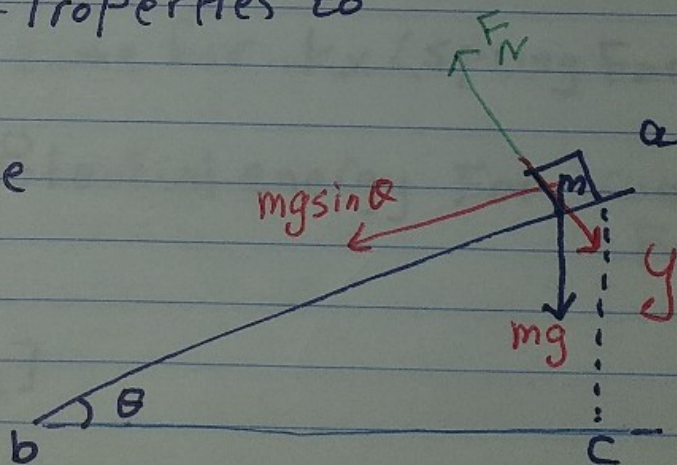 Properties to
F_N
a
e
m
mgsinθ
y
mg
θ
b
c